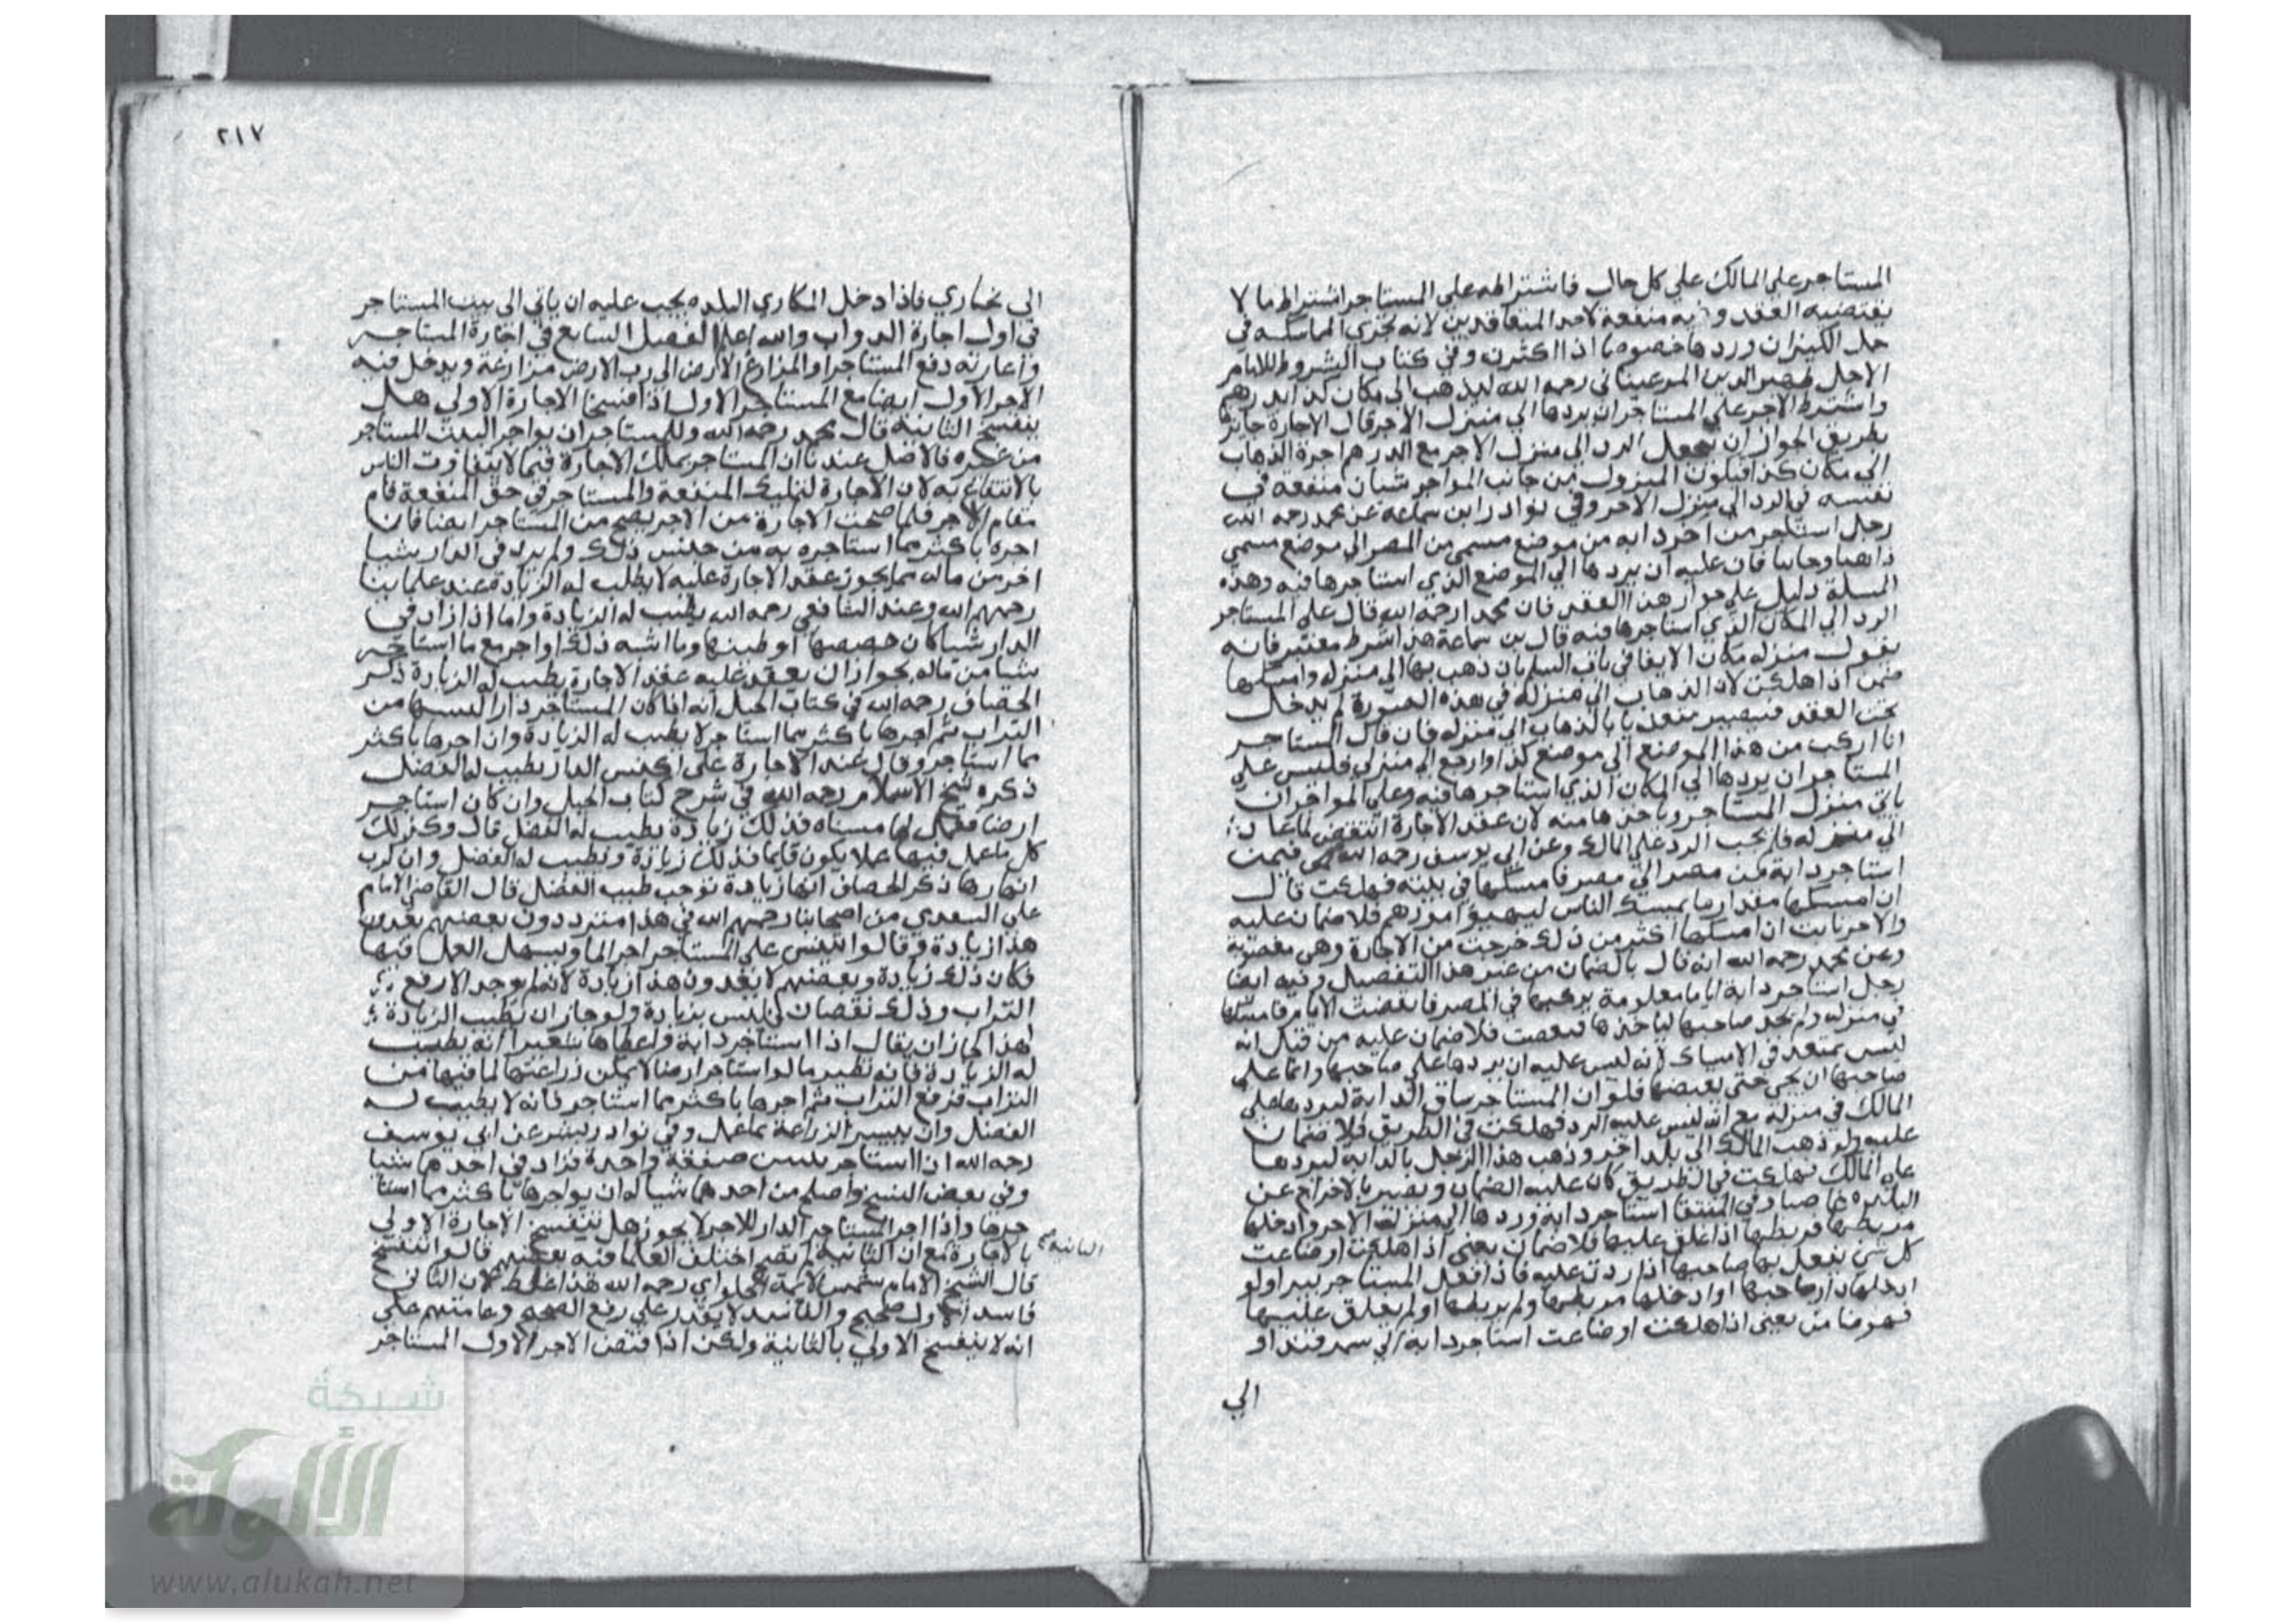 المستاجر علي المالك علي كل حال فاشتراطه علي المستاجر اشتراط ما لا
يقتضيه العقد وفيه منفعة لاحد المتعاقدين لانه تجري المماسكة في
حمل الكيزان وردها خصوصا اذا كثرن وفي كتاب الشروط للامام
الاجل ظهير الدين المرغيناني رحمه الله ليذهب الي مكان كذا بدرهم
واشترط الاجر علي المستاجر ان يردها الي منزل الاجر قال الاجارة جايزة
بطريق الجواز ان يجعل الرد الي منزل الاجر مع الدرهم اجرة الذهاب
الي مكان كذا فيكون المبزول من جانب المواجر شيان منفعة في
نفسه في الرد الي منزل الاجر وفي نوادر ابن سماعه عن محمد رحمه الله
رجل استاجر من اخر دابه من موضع مسمي من المصر الي موضع مسمي
ذاهبا وجايبا فان عليه ان يردها الي الموضع الذي استاجرها فيه وهذه
المسلة دليل علي جواز هذا العقد فان محمدا رحمه الله قال علي المستاجر
الرد الي المكان الذي استاجرها فيه قال بن سماعة هذا شرط معتبر فانه
يقول منزله مكان الايفا في باب السلم بان ذهب بها الي منزله وامسكها
ضمن اذا هلكت لان الذهاب الي منزله في هذه الصورة لم يدخل
تحت العقد فيصير متعديا بالذهاب الي منزله فان قال المستاجر
انا اركب من هذا الموضع الي موضع كذا وارجع الي منزلي فليس علي
المستاجر ان يردها الي المكان الذي استاجرها فيه وعلي المواجر ان
ياتي منزل المستاجر وياخذها منه لان عقد الاجارة انتقض لما عاد
الي منزله فانه يجب الرد علي المالك وعن ابي يوسف رحمه الله فيمن
استاجر دابة من مصر الي مصر فامسكها في بيته فهلكت قال
ان امسكها مقدار ما يمسك الناس ليهيؤ امورهم فلا ضمان عليه
والاجر ثابت ان امسكها اكثر من ذلك خرجت من الاجارة وهي مغصوبة
وعن محمد رحمه الله انه قال بالضمان من غير هذا التفصيل وفيه ايضا
رجل استاجر دابة اياما معلومة يركبها في المصر فانقضت الايام فامسكها
في منزله ولم يجد صاحبها لياخذها فنفقت فلا ضمان عليه من قبل انه
ليس بمتعد في الامساك لانه ليس عليه ان يردها علي صاحبها وانما علي
صاحبها ان يجي حتي يقبضها فلو ان المستاجر ساق الدابة ليردها علي
المالك في منزله مع انه ليس عليه الرد فهلكت في الطريق فلا ضمان
عليه ولو ذهب المالك الي بلد اخر وذهب هذا الرجل بالدابه ليردها
علي المالك فهلكت في الطريق كان عليه الضمان ويصير بالاخراج عن
البلدة غاصبا وفي المنتقا استاجر دابة وردها الي منزلة الاجر وادخلها
مربطها فربطها اذا غلق عليها فلا ضمان يعني اذا هلكت او ضاعت
كل شي يفعل بها صاحبها اذا ردت عليه فاذا فعل المستاجر بيرا ولو
ادخلها دار صاحبها او ادخلها مربطها ولم يربطها او لم يغلق عليها
فهو ضامن يعني اذا هلكت او ضاعت استاجر دابة الي سمرقند او
الي
٢١٧
الي بخاري فاذا دخل المكاري البلده يجب عليه ان ياتي الي بيت المستاجر
في اول اجارة الدواب والله اعلم الفصل السابع في اجارة المستاجر
واعارته دفع المستاجر او المزارع الارض الي رب الارض مزارعة ويدخل فيه
الاجر الاول ايضا مع المستاجر الاول اذا فسخا الاجارة الاولي هل
ينفسخ الثانية قال محمد رحمه الله وللمستاجر ان يواجر البيت المستاجر
من غيره فالاصل عندنا ان المستاجر يملك الاجارة فيما لا يتفاوت الناس
بالانتفاع به لان الاجارة لتمليك المنفعة والمستاجر في حق المنفعة قام
مقام الاجر فلما صحت الاجارة من الاجر يصح من المستاجر ايضا فان
اجره باكثر مما استاجره به من جنس ذلك ولم يزد في الدار شيا
اخر من ماله مما يجوز عقد الاجارة عليه لا يطيب له الزيادة عند علماينا
رحمهم الله وعند الشافعي رحمه الله يطيب له الزيادة واما اذا زاد في
الدار شيا كان جصصها او طينها وما اشبه ذلك او اجر مع ما استاجر
شيا من ماله يجوز ان يعقد عليه عقد الاجارة يطيب له الزيادة ذكر
الخصاف رحمه الله في كتاب الحيل انه اذا كان المستاجر دارا فكنسها من
التراب ثم اجرها باكثر مما استاجر لا يطيب له الزيادة وان اجرها باكثر
مما استاجر وقال عند الاجارة علي ان كنس الدار يطيب له الفضل
ذكره شيخ الاسلام رحمه الله في شرح كتاب الحيل وان كان استاجر
ارضا فعمل لها مسناه فذلك زيادة يطيب له الفضل قال وكذلك
كل ما عمل فيها عملا يكون قايما فذلك زيادة ويطيب له الفضل وان كرب
انهارها ذكر الخصاف انها زيادة توجب طيب الفضل قال القاضي الامام
علي السغدي من اصحابنا رحمهم الله في هذا مترددون بعضهم يعدون
هذا زيادة وقالوا تيسر علي المستاجر اجر الما ويسهل العمل فيها
فكان ذلك زيادة وبعضهم لا يعدون هذا زيادة لانه لم يوجد الا رفع
التراب وذلك نقصان ليس بزيادة ولو جاز ان يطيب الزيادة
لهذا لجاز ان يقال اذا استاجر دابة واعطاها شعيرا انه يطيب
له الزيادة فانه نظير ما لو استاجر ارضا لا يمكن زراعتها لما فيها من
التراب فرفع التراب ثم اجرها باكثر مما استاجر فانه لا يطيب له
الفضل وان تيسر الزراعة بما عمل وفي نوادر بشر عن ابي يوسف
رحمه الله ان استاجر بيتين صفقة واحدة فزاد في احدهما شيا
وفي بعض النسخ واصلح من احدهما شيا له ان يواجرها باكثر مما استا
جرها واذا اجر المستاجر الدار للاجر لا يجوز هل تنفسخ الاجارة الاولي
بالاجارة مع ان الثانية لم تصح اختلف العلما فيه بعضهم قالوا تنفسخ
الثانية صح
قال الشيخ الامام شمس الايمة الحلواي رحمه الله هذا غلط لان الثاني
فاسد والاول صحيح والفاسد لا يقدر علي رفع الصحيح وعامتهم علي
انه لا ينفسخ الاولي بالثانية ولكن اذا قبض الاجر الاول المستاجر
شبكة
الألوكة
www.alukah.net